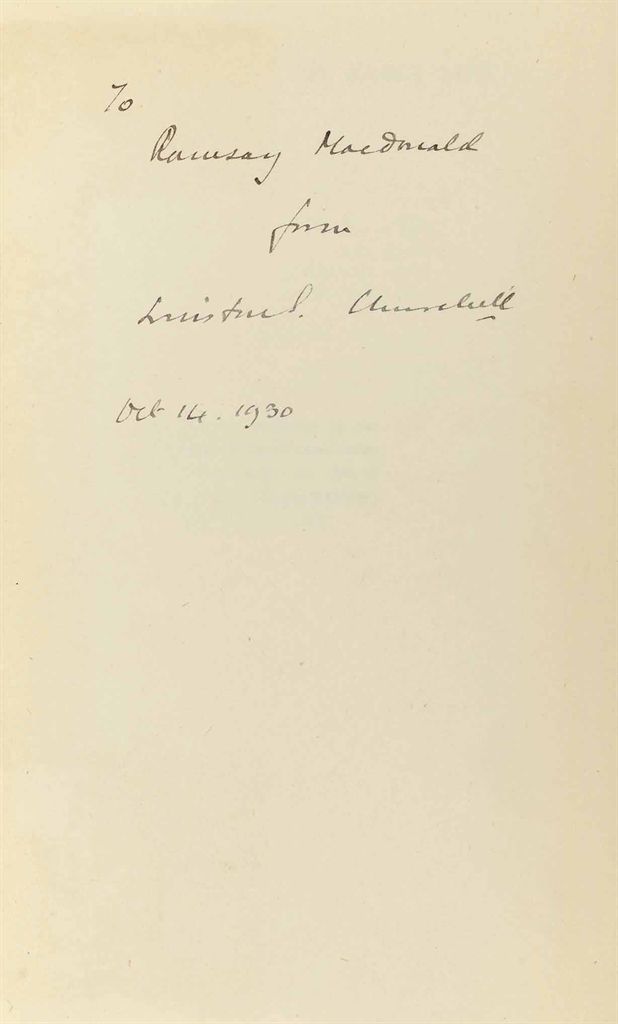 To
Ramsay Macdonald
from
Winston S. Churchill
Oct 14. 1930